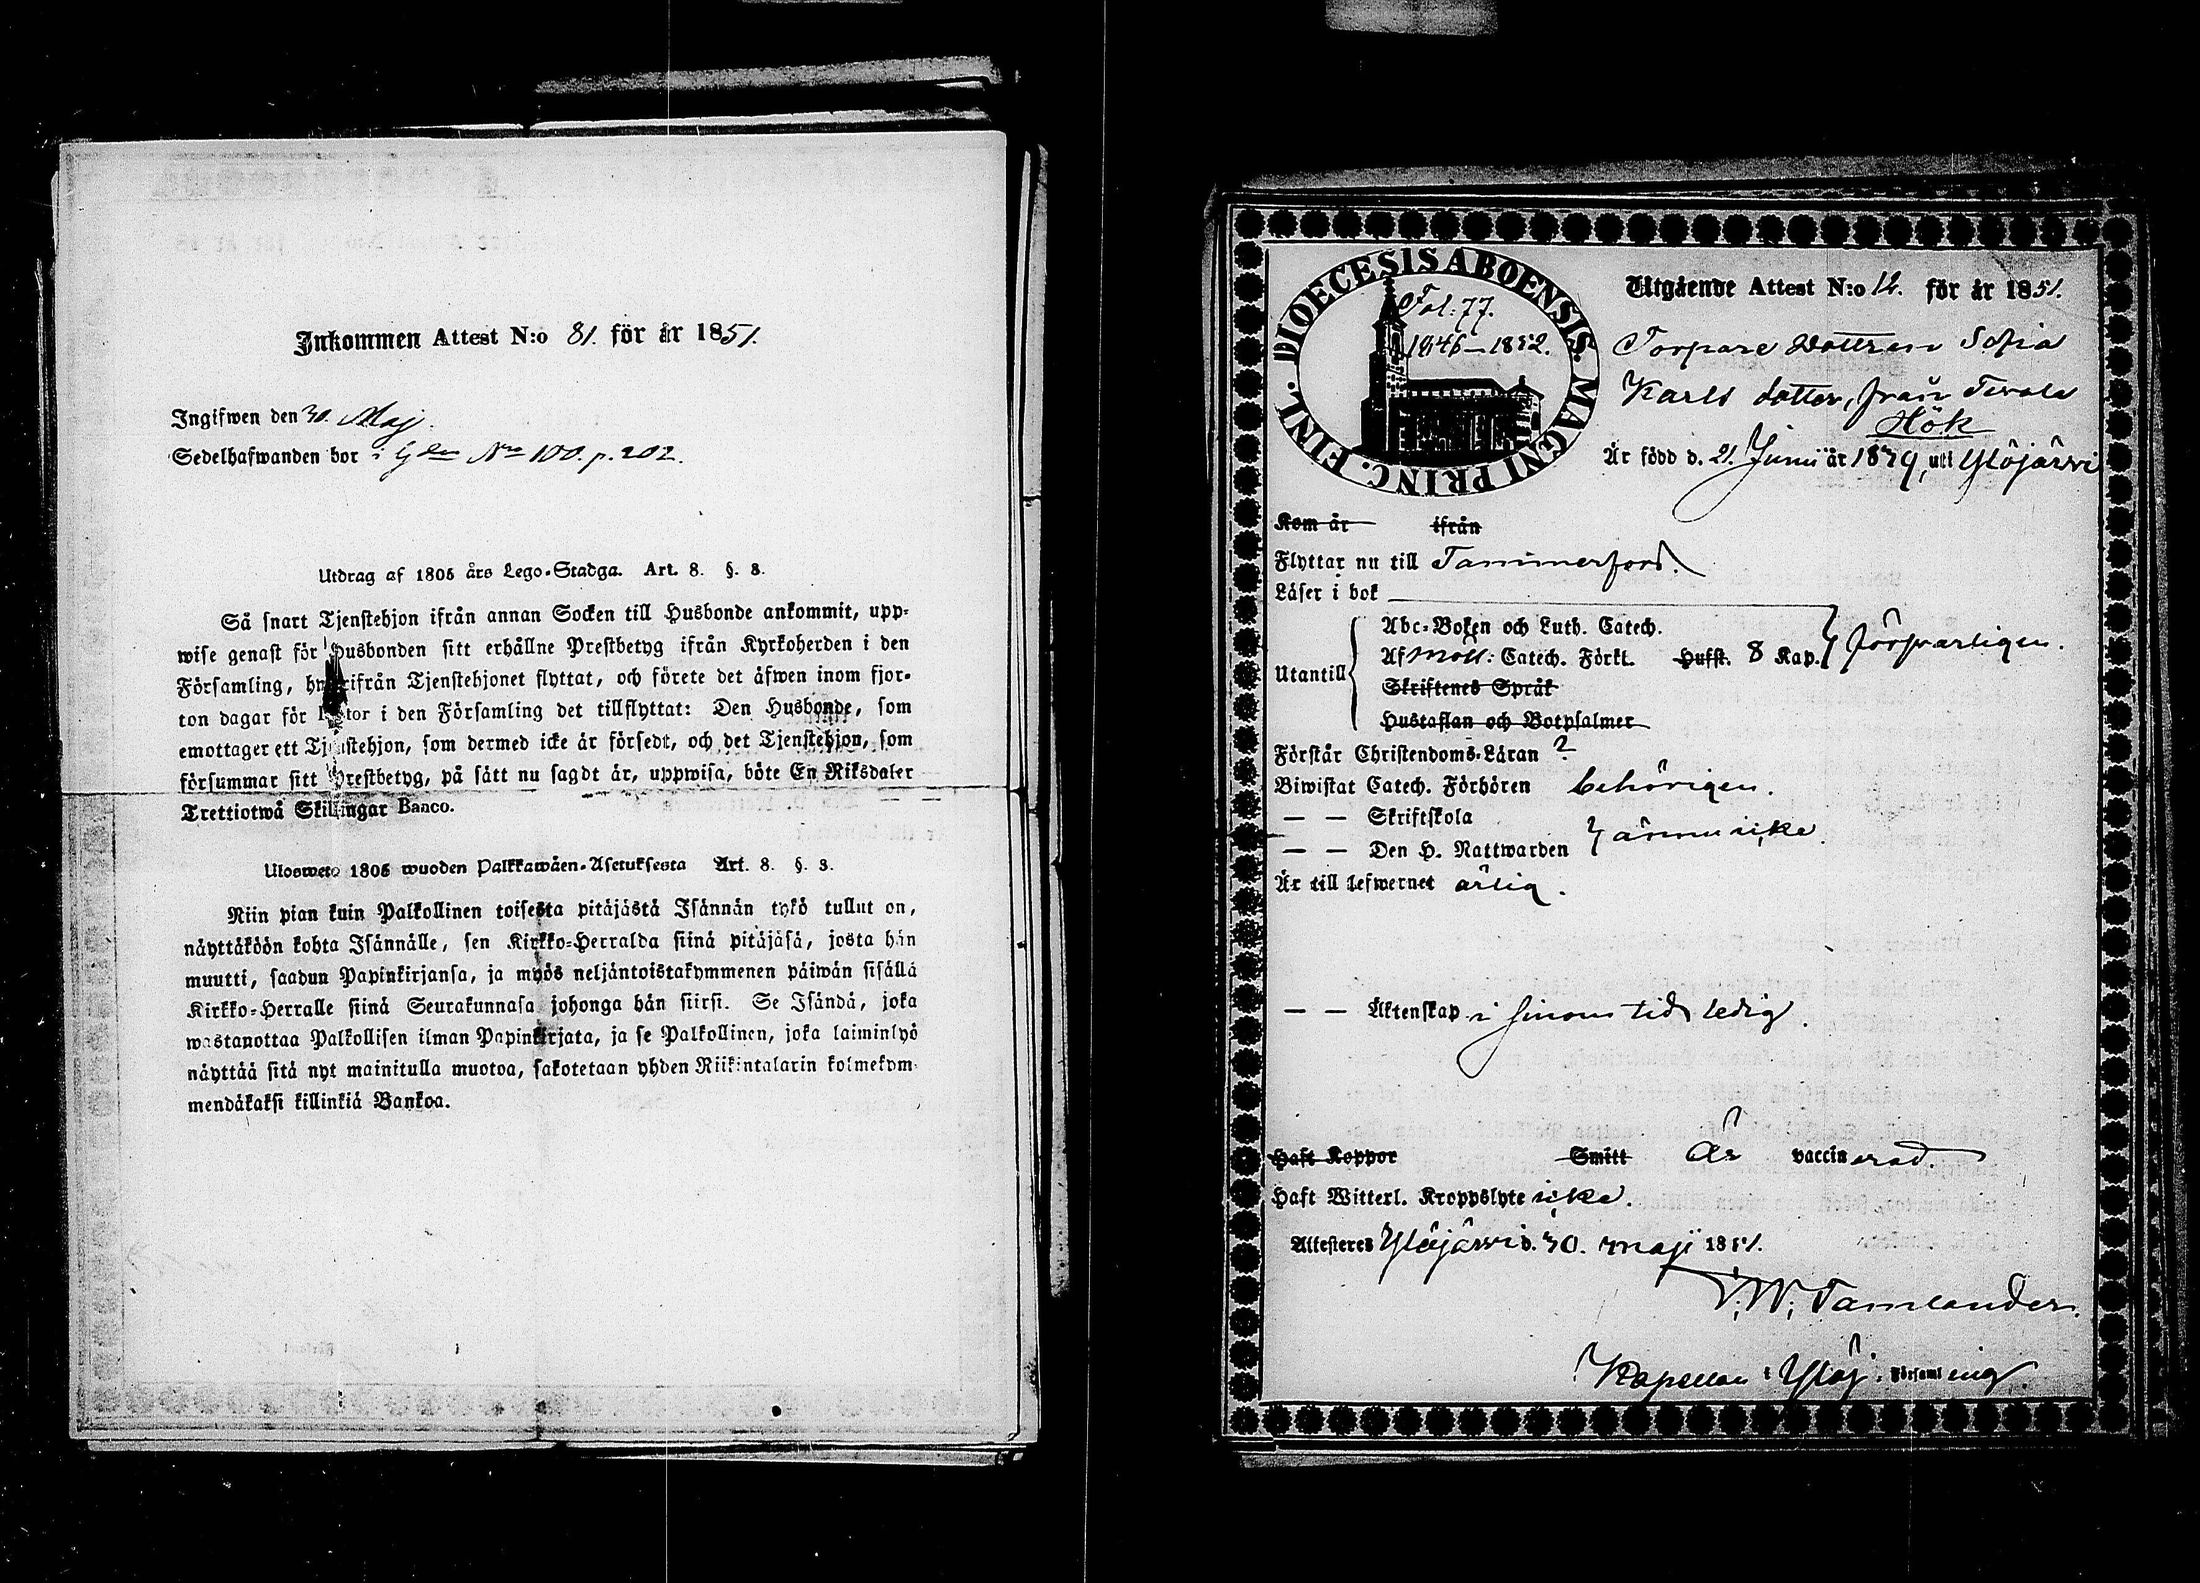 Inkommen Attest N:o 81. för år 1851.
Ingifwen den 30. Maj.
Sedelhafwanden bor i No 100. p. 202.
Utdrag af 1805 års Lego-Stadga. Art. 8. §. 3.
Så snart Tjenstehjon ifrån annan Socken till Husbonde ankommit, upp-
wise genast för Husbonden sitt erhållne Prestbetyg ifrån Kyrkoherden i den
Församling, hwarifrån Tjenstehjonet flyttat, och förete det äfwen inom fjor-
ton dagar för Pastor i den Församling det tillflyttat: Den Husbonde, som
emottager ett Tjenstehjon, som dermed icke är försedt, och det Tjenstehjon, som
försummar sitt Prestbetyg, på sätt nu sagdt är, uppwisa, böte En Riksdaler
Trettiotwå Skillingar Banco.
Ulosweto 1805 wuoden Palkkawäen-Asetuksesta Art. 8. §. 3.
Niin pian kuin Palkollinen toisesta pitäjästä Isännän tykö tullut on,
näyttäköön kohta Isännälle, sen Kirkko-Herralda siinä pitäjäsä, josta hän
muutti, saadun Papinkirjansa, ja myös neljäntoistakymmenen päiwän sisällä
Kirkko-Herralle siinä Seurakunnasa johonga hän siirsi. Se Isändä, joka
wastanottaa Palkollisen ilman Papinkirjata, ja se Palkollinen, joka laiminlyö
näyttää sitä nyt mainitulla muotoa, sakotetaan yhden Riikintalarin kolmekym-
mendäkaksi killinkiä Bankoa.
DIOECESIS ABOENSIS. MAGNI PRINC. FINL.
Fol: 77.
1846–1852.
Utgående Attest N:o 12. för år 1851.
Torpare Dottren Sofia
Karls dotter, från
Hök
Är född d. 21. Junii år 18 uti Ylöjärvi
Kom år ifrån
Flyttar nu till Tammerfors.
Läser i bok
Abc-Boken och Luth. Catech.
Utantill
Af Möll: Catech. Förkl. Husst. 8 Kap. försvarligen.
Skriftenes Språk
Hustaflan och Botpsalmer
Förstår Christendoms-Läran ?
Biwistat Catech. Förhören behörigen.
— — Skriftskola
— — Den H. Nattwarden ännu icke
Är till lefwernet ärlig.
— — Äktenskap i sinom tid ledig.
Haft Koppor Smitt Är vaccinerad.
Haft Witterl. Kroppslyte icke.
Attesteres Ylöjärvi d. 30. maji 1851.
W. Tamlander.
Kapellan i Ylöj. Församling